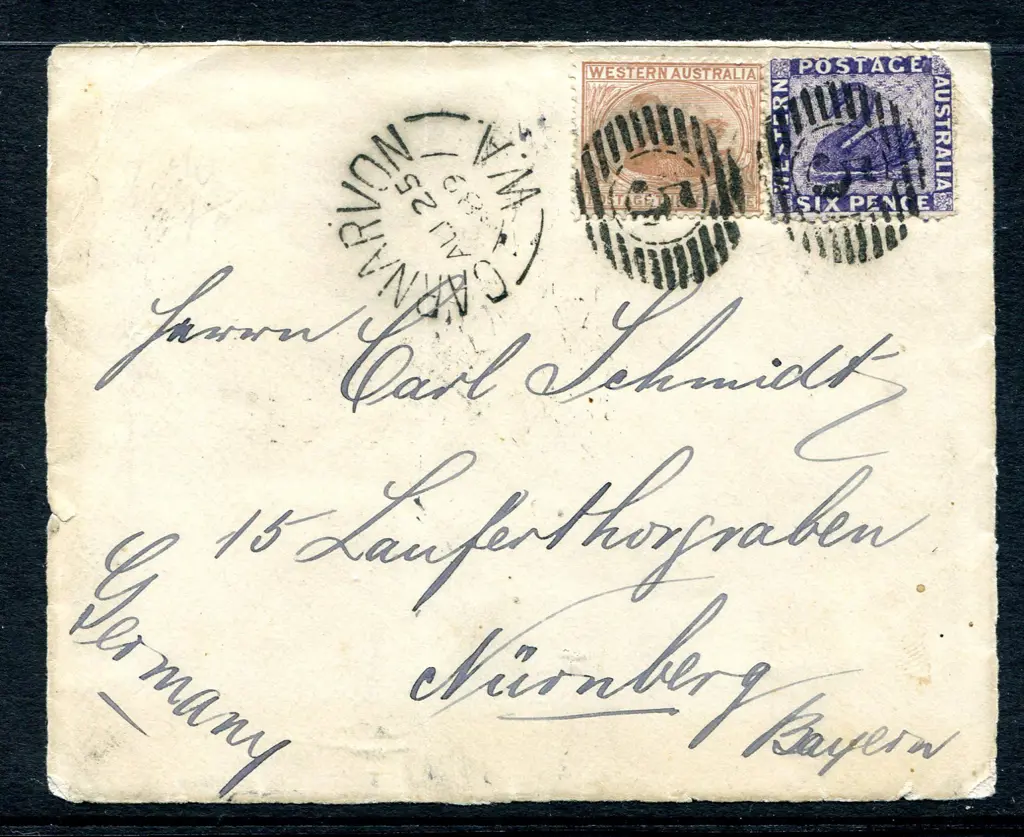 CARNARVON W.A.
AU 25
89
WESTERN AUSTRALIA
POSTAGE
POSTAGE
WESTERN
AUSTRALIA
SIX PENCE
Herrn
Carl Schmidt
15 Lauferthorgraben
Nürnberg
Bayern
Germany